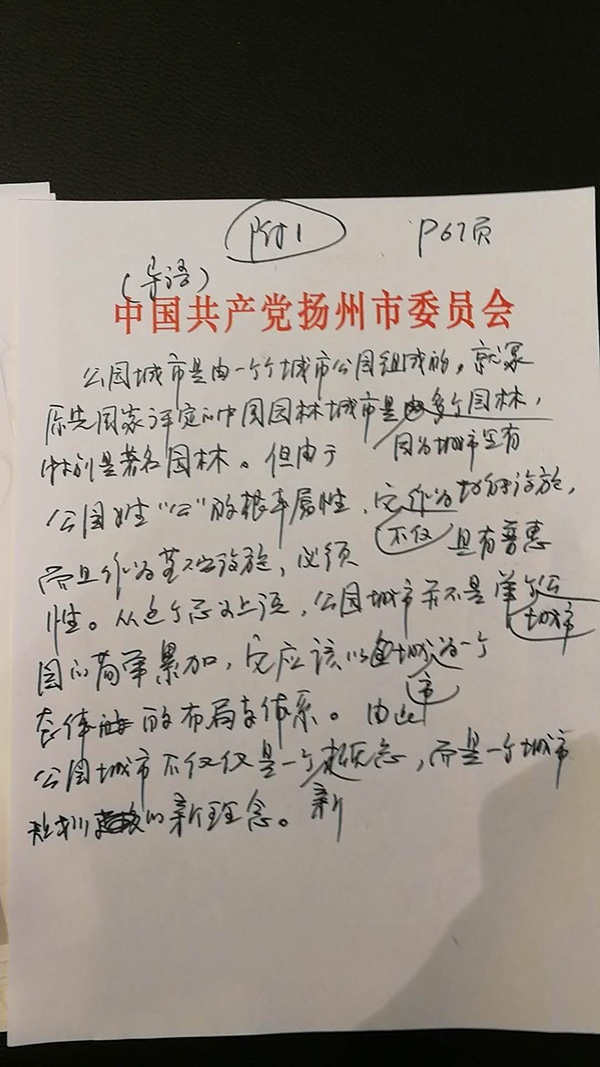 附1 P67页
(导语)
中国共产党扬州市委员会
公园城市是由一个个城市公园组成的,就象
原先国家评定的中国园林城市是多个园林,
特别是著名园林。但由于 因为城市里有
公园姓“公”的根本属性,它作为城市设施,
而且作为基础设施,必须 不仅 具有普惠
性。从这个意义上讲,公园城市并不是单个公
园的简单累加,它应该以全城为一个 城市
整体的布局与体系。由此 市
公园城市不仅仅是一个概念,而是一个城市
规划的新理念。新